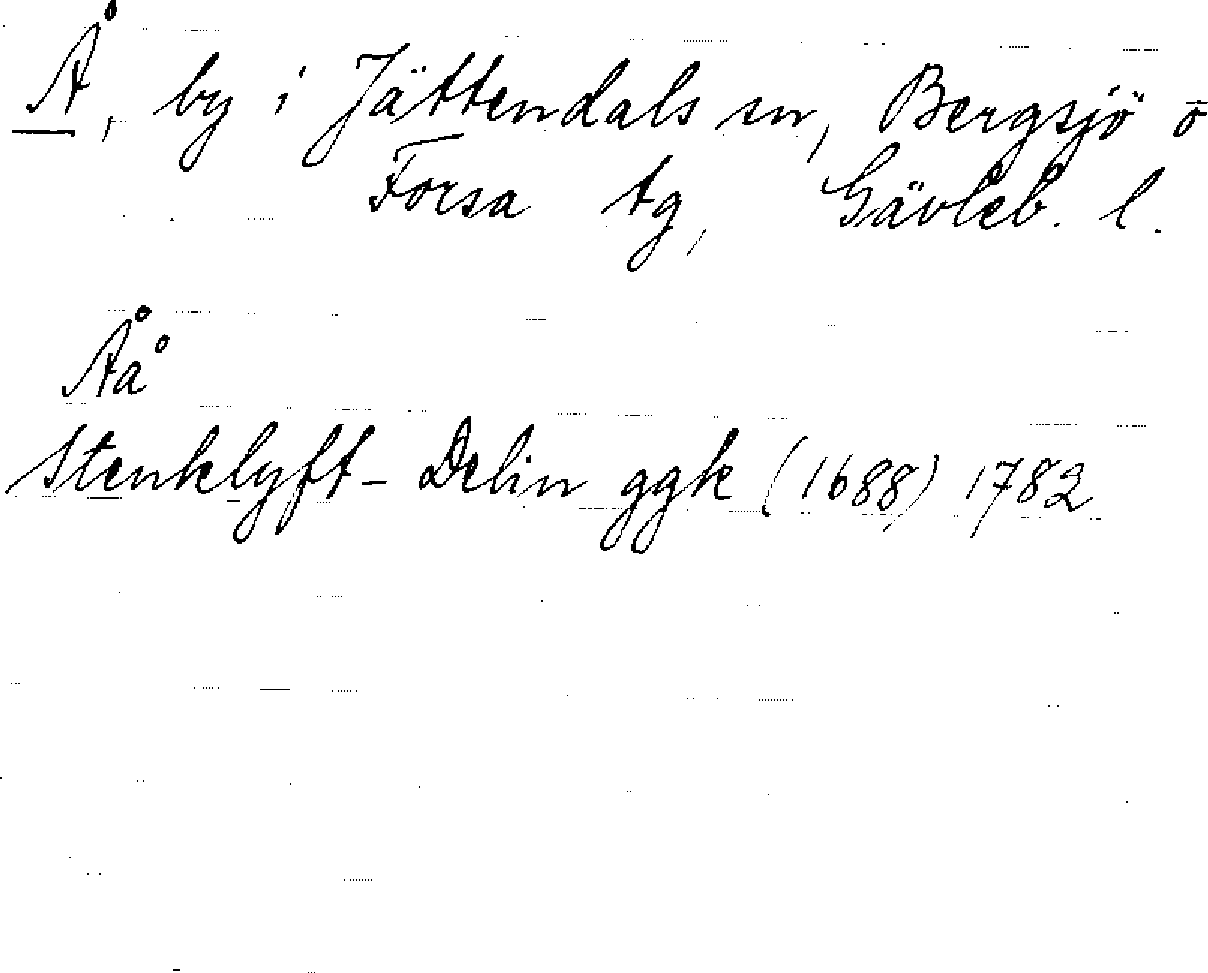 Å, by i Jättendals sn, Bergsjö o
Forsa tg, Gävleb. l.
Åå
Stenklyft- Delin ggk (1688) 1782